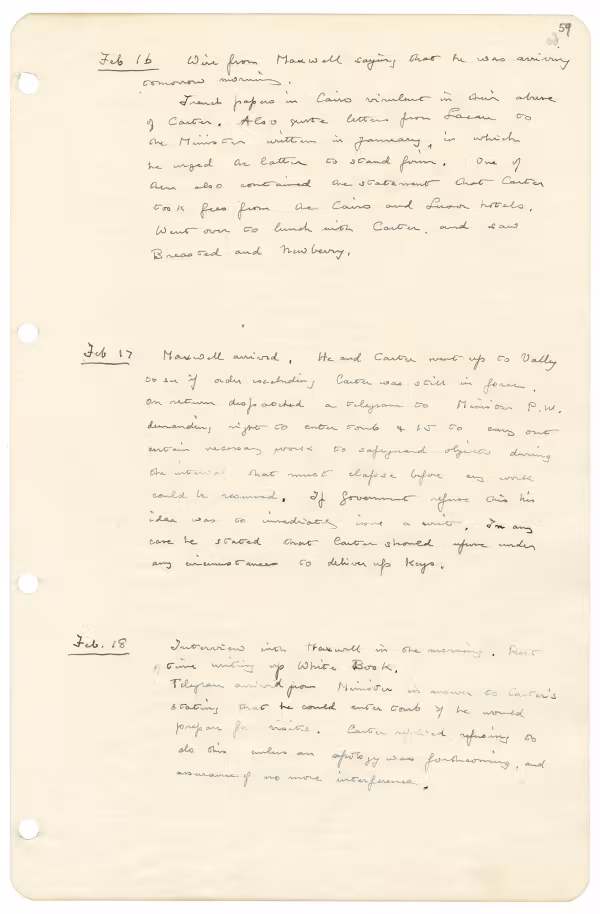 59
Feb 16 Wire from Maxwell saying that he was arriving
tomorrow morning.
French papers in Cairo virulent in their abuse
of Carter. Also quote letters from Lacau to
the Minister written in January, in which
he urged the latter to stand firm. One of
them also contained the statement that Carter
took fees from the Cairo and Luxor hotels.
Went over to lunch with Carter, and saw
Breasted and Newberry.
Feb 17 Maxwell arrived. He and Carter went up to Valley
to see if order excluding Carter was still in force.
On return dispatched a telegram to Minister P.W.
demanding right to enter tomb & 15 to carry out
certain necessary work to safeguard objects during
the interval that must elapse before any work
could be resumed. If Government refuse this his
idea was to immediately issue a writ. In any
case he stated that Carter should refuse under
any circumstances to deliver up keys.
Feb. 18 Interview with Maxwell in the morning. Rest
of time writing up White Book.
Telegram arrived from Minister in answer to Carter's
stating that he could enter tomb if he would
prepare for visits. Carter replied refusing to
do this unless an apology was forthcoming, and
assurance of no more interference.